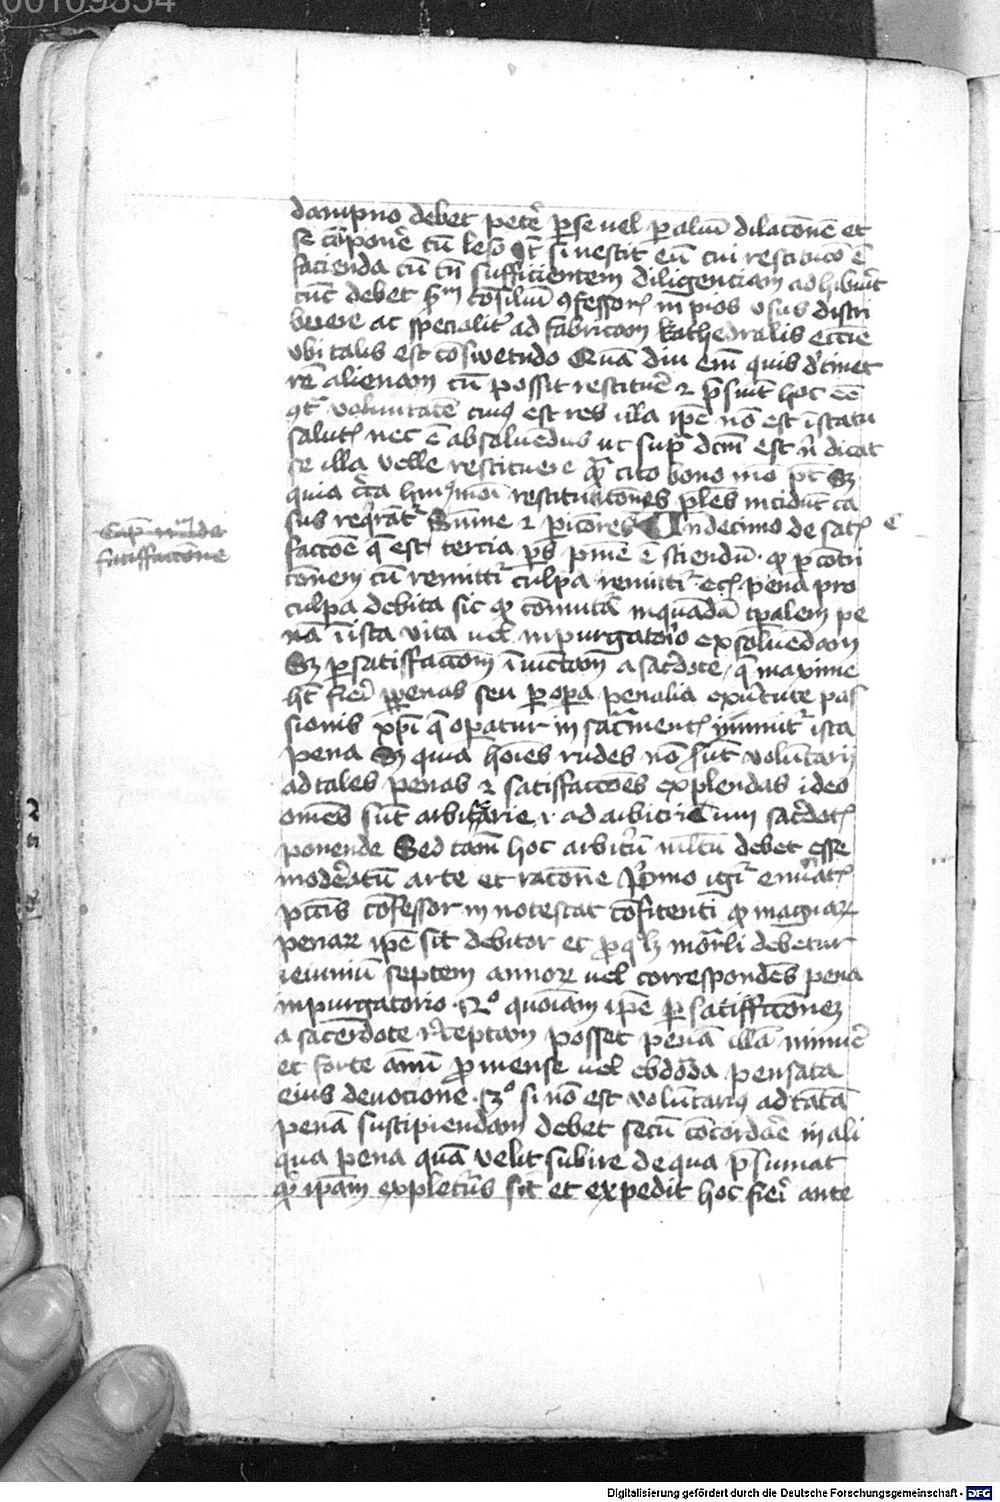 00109354
dampno debet petẽ p se vel p aliũ dilacõnẽ et
se cõponẽ cũ leso Qt̃ si nescit eũ cui restitucõ ẽ
facienda cũ tñ sufficientem diligenciam adhibuĩt
tũc debet scd̃m cõsiliũ ꝯfessoris in pios vsus distri
buere ac specialit̃ ad fabricam kathedralis eccl̃ie
vbi talis est cõswetudo Quã diu eni͂ quis detinet
rẽ alienam cũ possit restituẽ ⁊ p̃sũit hoc eẽ
ꝯt̃ voluntatẽ cuiꝰ est res illa ip̃e nõ est ĩ statu
salutꝭ nec ẽ absoluẽdus ut sup̃ dc̃m est n̄ dicat
se illa velle restituere q̃ cito bono mõ pt̃ Sꝫ
quia c̃ca huiꝰmõi restitucõnes pl̃es incidũt ca
sus req̃rant̃ Sum̃e ⁊ picõres ¶ Undecimo de satꝭ
faccõe q̃ est tercia p̃s pñie ẽ sciendũ ꝙ p cõtri
cõnem cũ remittit̃ culpa remittit̃ ec̃ pena pro
culpa debita sic ꝙ cõmutat̃ in quadã tp̃alem pe
nã ĩ ista vita uel in purgatorio exsoluendam
Sꝫ p satisffaccõem ĩiunctam a sac̃dote q̃ maxime
hꝫ fieri p penas seu p opa penalia ex ũtute pas
sionis xp̃i q̃ operatur in sac̃mentꝭ imĩuit̃ ista
pena Sꝫ quia hoĩes rudes nõ sũt volũtarij
ad tales penas ⁊ satisfaccões explendas ideo
omẽs sũt arbit̃arie .i. ad arbitriũ sac̃dotꝭ
ponende Sed tam̃ hoc arbit̃iũ ml̃tũ debet esse
modẽatũ arte et racõne P̃mo igit̃ enũatꝭ
pctĩs cõfessor innotescat cõfitenti ꝙ magnaꝝ
penaꝝ ip̃e sit debitor et p̃ qͦlꝫ mor̃li debetur
ieiuniũ septem annoꝝ uel correspondẽs pena
in purgatorio 2ͦ quoniam ip̃e p satisffaccõnem
a sacerdote r̃ceptam posset penã illã minuẽ
et forte annũ p̃ mense uel ebdõda pensata
eius deuotione 3ͦ si nõ est volũtariꝰ ad tãtã
penã suscipiendam debet secũ cõcordaẽ in ali
qua pena quã velit subire de qua p̃sumat
ꝙ ip̃am expletur̃s sit et expedit hoc fieri ante
Cap̃m de
satisffaccõne
Digitalisierung gefördert durch die Deutsche Forschungsgemeinschaft - DFG